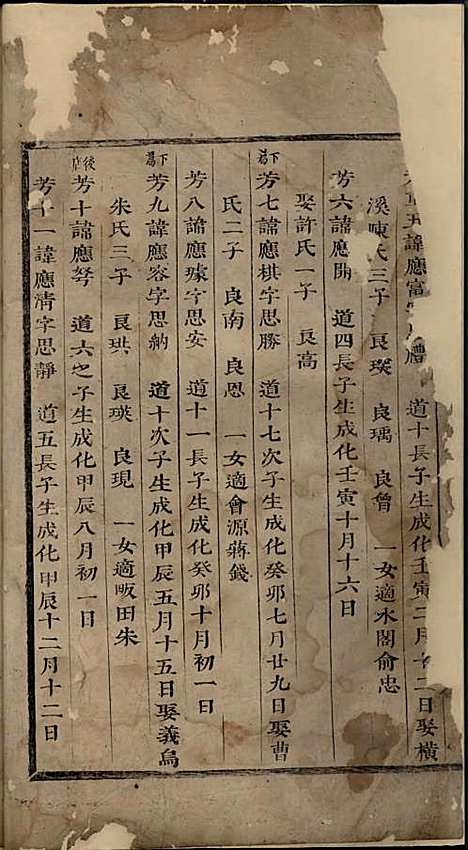 五諱應富字思禮 道十長子生成化壬寅二月十二日娶橫
溪陳氏三子 良璨 良瑀 良曾 一女適水閣俞忠
芳六諱應開 道四長子生成化壬寅十月十六日
娶許氏一子 良高
下蔿芳七諱應棋字思勝 道十七次子生成化癸卯七月廿九日娶曹
氏二子 良南 良恩 一女適會源蔣錢
芳八諱應璩字思安 道十一長子生成化癸卯十月初一日
下蔿芳九諱應容字思納 道十次子生成化甲辰五月十五日娶義烏
朱氏三子 良珙 良瑛 良現 一女適畈田朱
後店芳十諱應弩 道六之子生成化甲辰八月初一日
芳十一諱應清字思靜 道五長子生成化甲辰十二月十二日